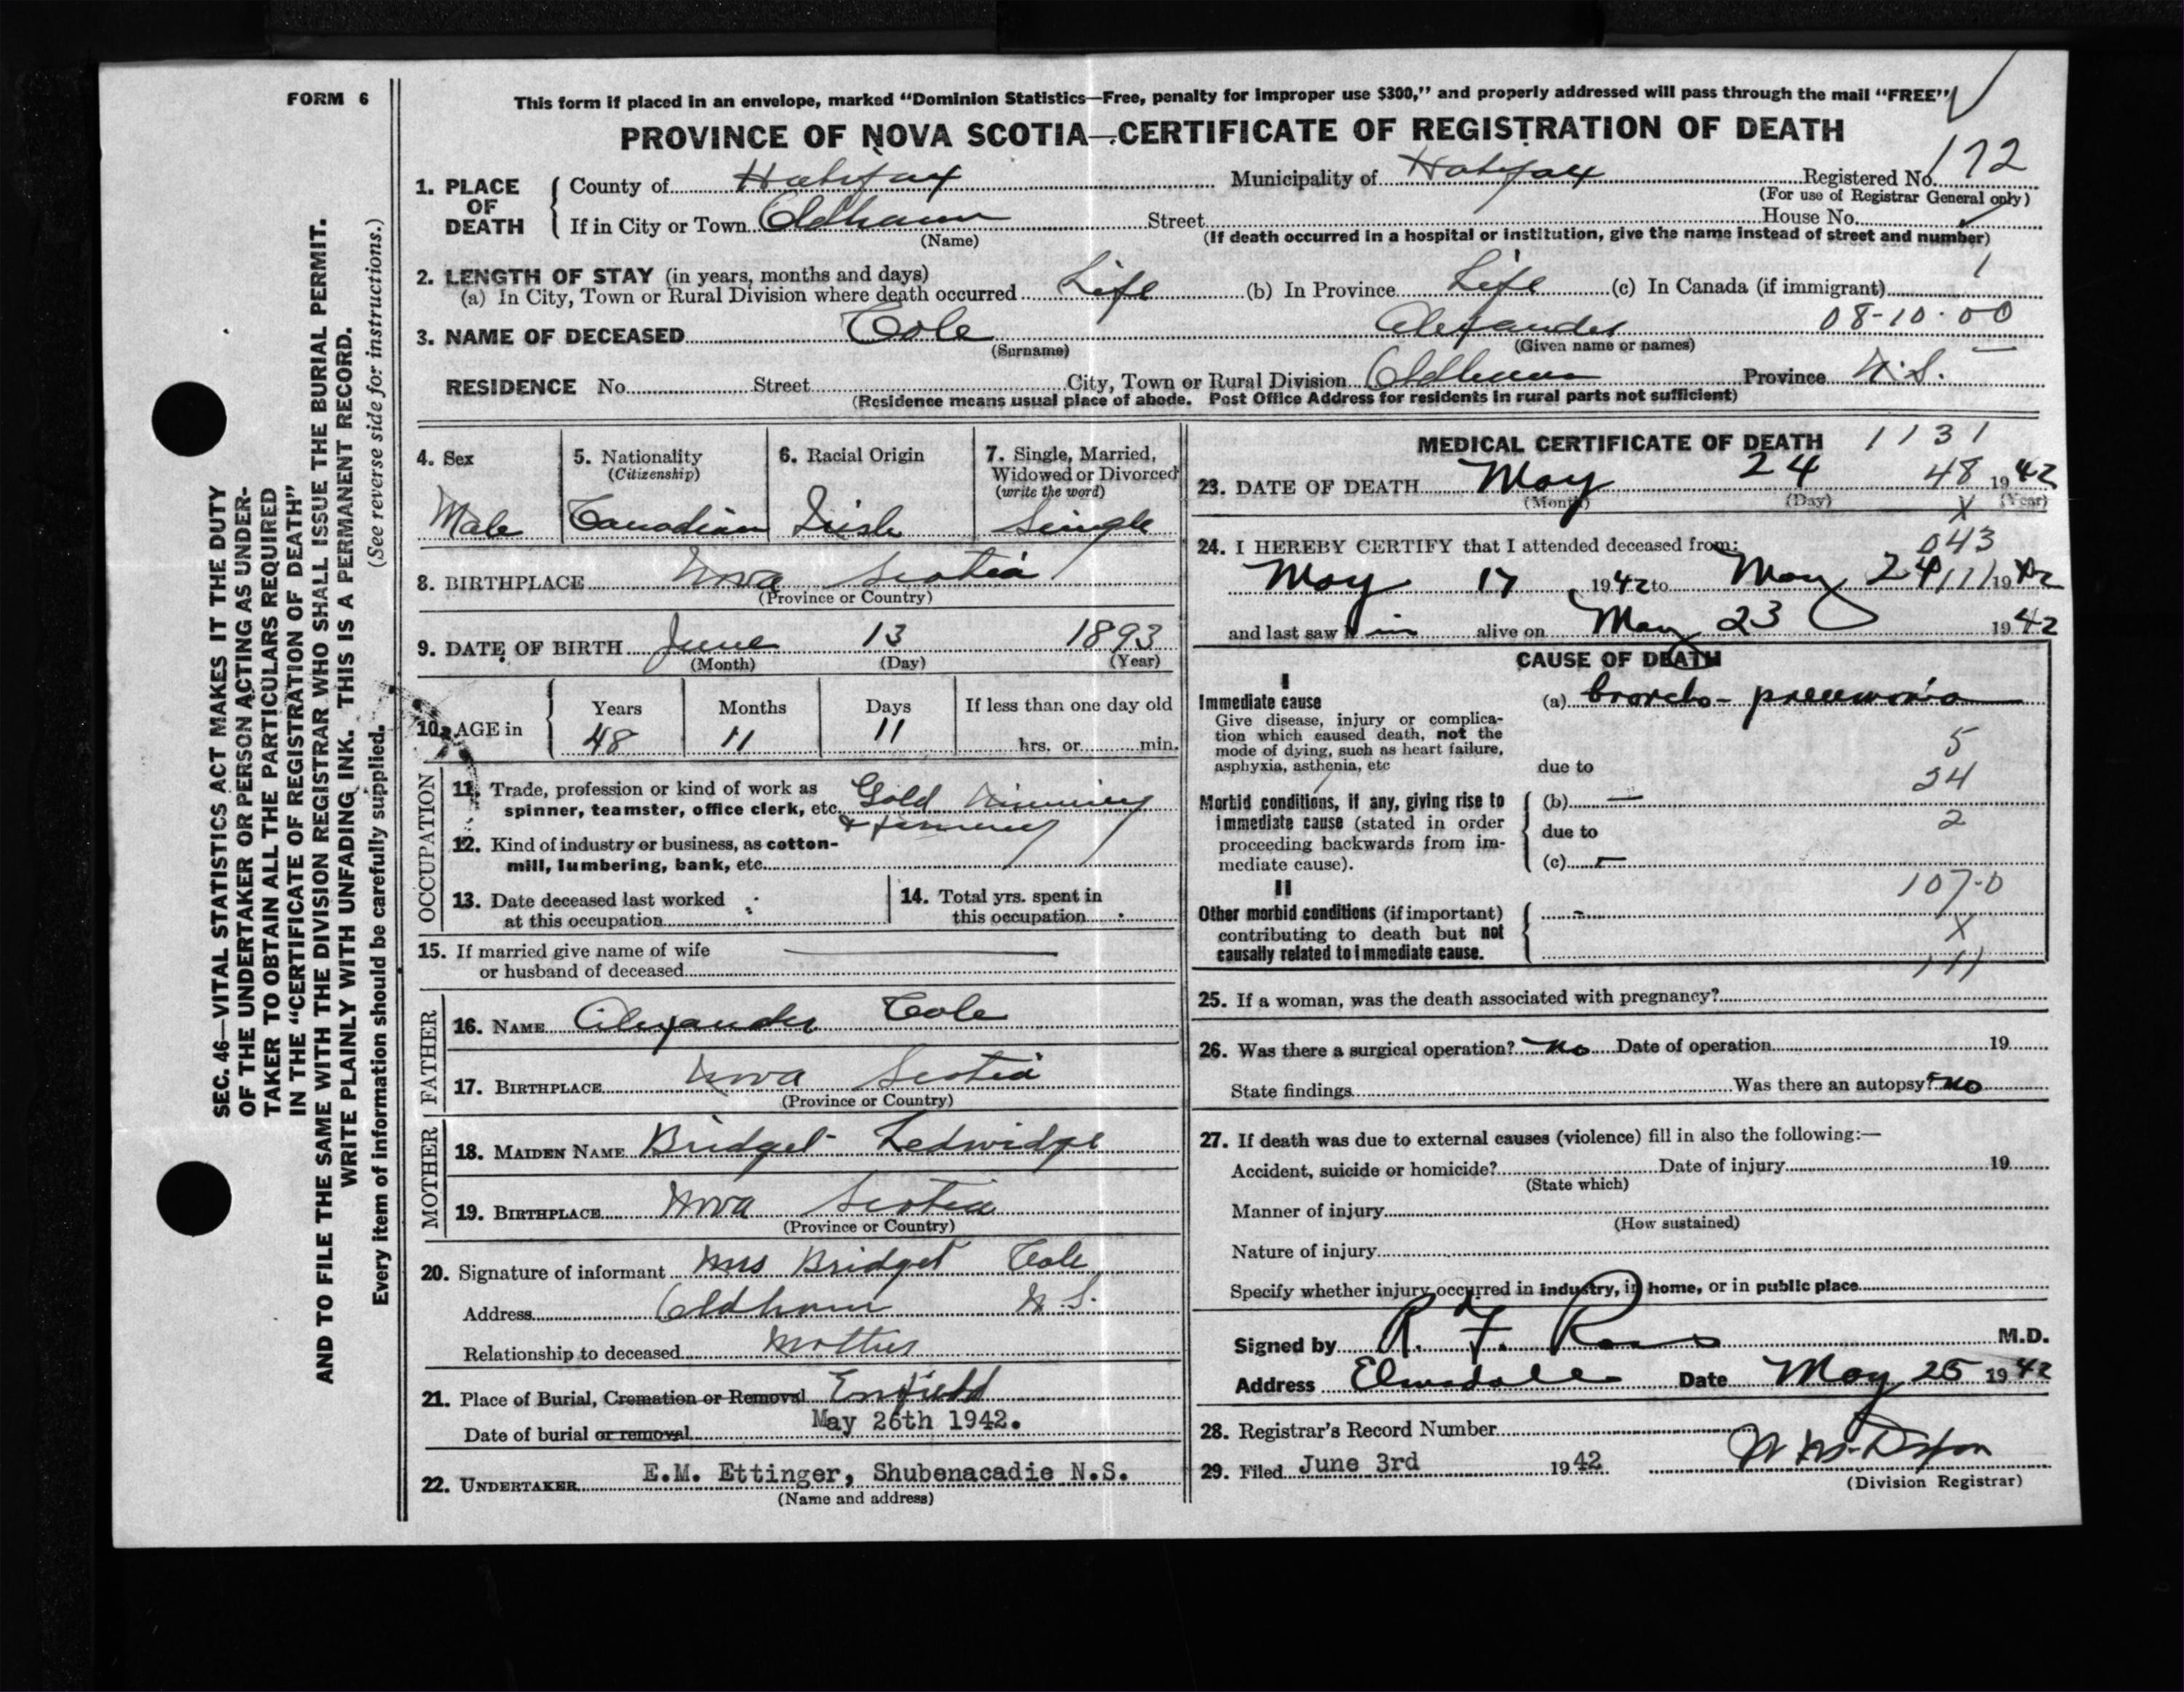 FORM 6
This form if placed in an envelope, marked "Dominion Statistics—Free, penalty for improper use $300," and properly addressed will pass through the mail "FREE"
PROVINCE OF NOVA SCOTIA—CERTIFICATE OF REGISTRATION OF DEATH
1. PLACE OF DEATH
County of Halifax Municipality of Halifax Registered No. 172
(For use of Registrar General only)
If in City or Town Oldham Street House No.
(Name) (If death occurred in a hospital or institution, give the name instead of street and number)
2. LENGTH OF STAY (in years, months and days)
(a) In City, Town or Rural Division where death occurred Life (b) In Province Life (c) In Canada (if immigrant)
3. NAME OF DECEASED Cole Alexander 08-10-00
(Surname) (Given name or names)
RESIDENCE No. Street City, Town or Rural Division Oldham Province N.S.
(Residence means usual place of abode. Post Office Address for residents in rural parts not sufficient)
4. Sex
Male
5. Nationality
(Citizenship)
Canadian
6. Racial Origin
Irish
7. Single, Married,
Widowed or Divorced
(write the word)
Single
8. BIRTHPLACE Nova Scotia
(Province or Country)
9. DATE OF BIRTH June 13 1893
(Month) (Day) (Year)
10. AGE in
Years Months Days If less than one day old
48 11 11 hrs. or min.
OCCUPATION
11. Trade, profession or kind of work as
spinner, teamster, office clerk, etc. Gold mining
12. Kind of industry or business, as cotton-
mill, lumbering, bank, etc.
13. Date deceased last worked
at this occupation
14. Total yrs. spent in
this occupation
15. If married give name of wife
or husband of deceased
FATHER
16. NAME Alexander Cole
17. BIRTHPLACE Nova Scotia
(Province or Country)
MOTHER
18. MAIDEN NAME Bridget Ledwidge
19. BIRTHPLACE Nova Scotia
(Province or Country)
20. Signature of informant Mrs Bridget Cole
Address Oldham N.S.
Relationship to deceased Mother
21. Place of Burial, Cremation or Removal Enfield
Date of burial or removal May 26th 1942.
22. UNDERTAKER E.M. Ettinger, Shubenacadie N.S.
(Name and address)
MEDICAL CERTIFICATE OF DEATH 1131
23. DATE OF DEATH May 24 48 1942
(Month) (Day) (Year)
X
24. I HEREBY CERTIFY that I attended deceased from: 043
May 17 1942 to May 24 1942
and last saw him alive on May 23 1942
CAUSE OF DEATH
I
Immediate cause (a) broncho-pneumonia
Give disease, injury or complica-
tion which caused death, not the
mode of dying, such as heart failure,
asphyxia, asthenia, etc
due to
5
34
Morbid conditions, if any, giving rise to
immediate cause (stated in order
proceeding backwards from im-
mediate cause).
(b) —
due to
2
(c) —
II
107-0
Other morbid conditions (if important)
contributing to death but not
causally related to immediate cause.
X
111
25. If a woman, was the death associated with pregnancy?
26. Was there a surgical operation? no Date of operation 19
State findings Was there an autopsy? no
27. If death was due to external causes (violence) fill in also the following:—
Accident, suicide or homicide? Date of injury 19
(State which)
Manner of injury
(How sustained)
Nature of injury
Specify whether injury occurred in industry, in home, or in public place
Signed by R. F. Ross M.D.
Address Elmsdale Date May 25 1942
28. Registrar's Record Number
29. Filed June 3rd 1942
(Division Registrar)
SEC. 46—VITAL STATISTICS ACT MAKES IT THE DUTY
OF THE UNDERTAKER OR PERSON ACTING AS UNDER-
TAKER TO OBTAIN ALL THE PARTICULARS REQUIRED
IN THE "CERTIFICATE OF REGISTRATION OF DEATH"
AND TO FILE THE SAME WITH THE DIVISION REGISTRAR WHO SHALL ISSUE THE BURIAL PERMIT.
WRITE PLAINLY WITH UNFADING INK. THIS IS A PERMANENT RECORD.
(See reverse side for instructions.)
Every item of information should be carefully supplied.